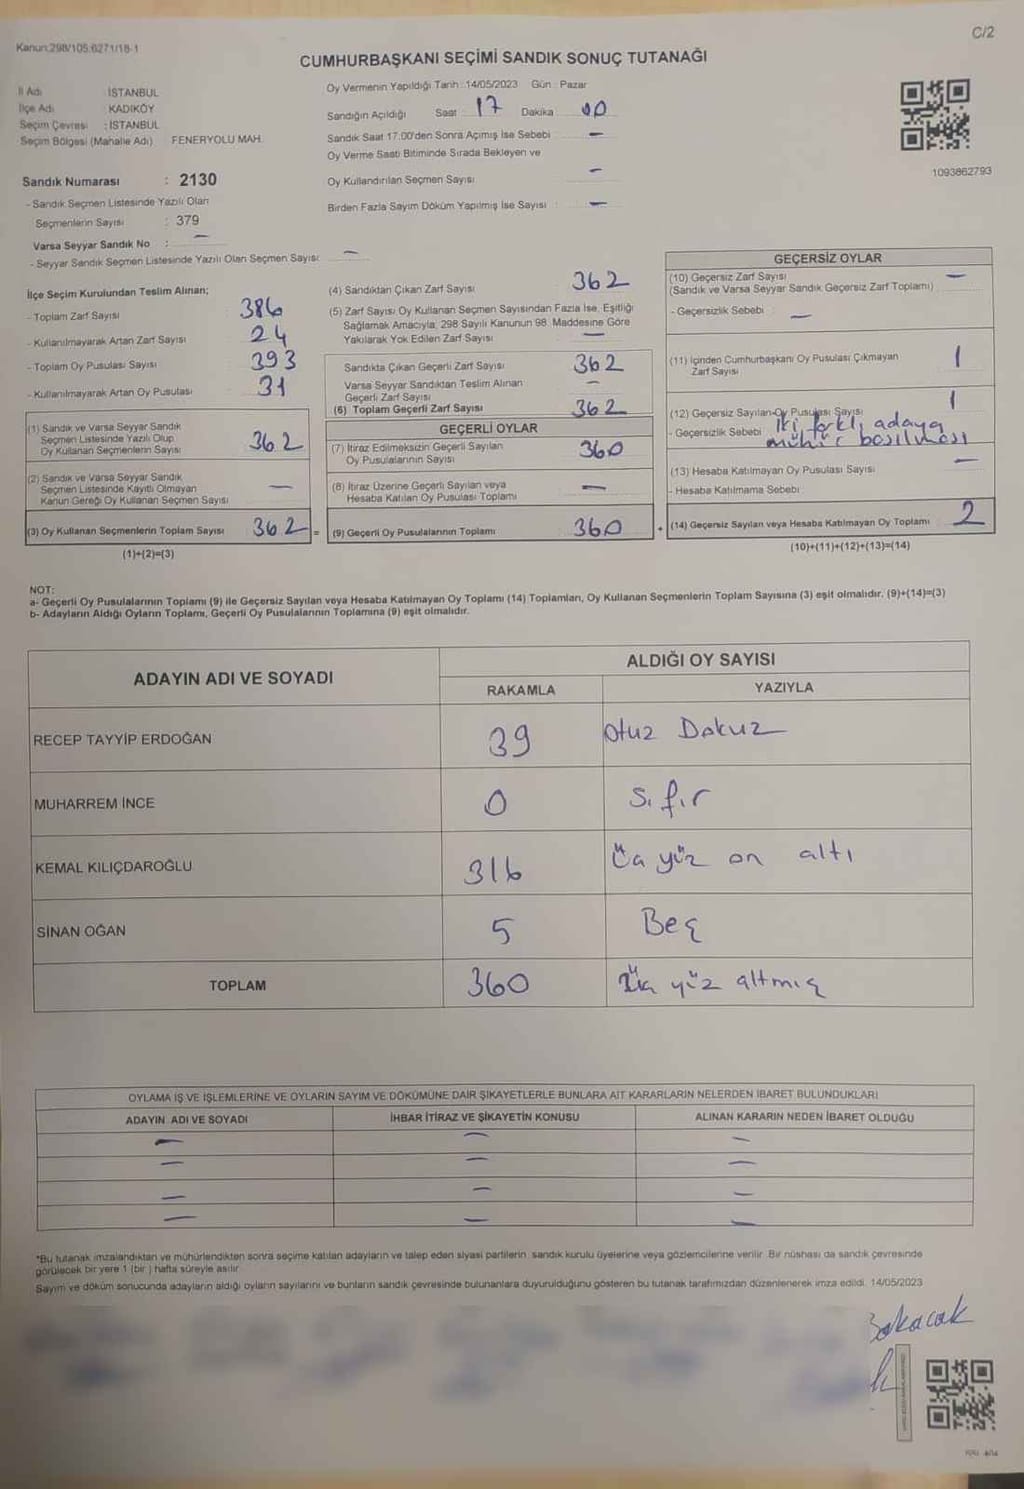 Kanun:298/105;6271/18-1
C/2
CUMHURBAŞKANI SEÇİMİ SANDIK SONUÇ TUTANAĞI
İl Adı : İSTANBUL
İlçe Adı : KADIKÖY
Seçim Çevresi : İSTANBUL
Seçim Bölgesi (Mahalle Adı) FENERYOLU MAH.
Sandık Numarası : 2130
- Sandık Seçmen Listesinde Yazılı Olan
Seçmenlerin Sayısı : 379
Varsa Seyyar Sandık No : -
- Seyyar Sandık Seçmen Listesinde Yazılı Olan Seçmen Sayısı: -
Oy Vermenin Yapıldığı Tarih : 14/05/2023 Gün : Pazar
Sandığın Açıldığı Saat : 17 Dakika : 00
Sandık Saat 17:00'den Sonra Açımış İse Sebebi : -
Oy Verme Saati Bitiminde Sırada Bekleyen ve
Oy Kullandırılan Seçmen Sayısı : -
Birden Fazla Sayım Döküm Yapılmış İse Sayısı : -
1093862793
İlçe Seçim Kurulundan Teslim Alınan;
- Toplam Zarf Sayısı 386
- Kullanılmayarak Artan Zarf Sayısı 24
- Toplam Oy Pusulası Sayısı 393
- Kullanılmayarak Artan Oy Pusulası 31
(1) Sandık ve Varsa Seyyar Sandık
Seçmen Listesinde Yazılı Olup
Oy Kullanan Seçmenlerin Sayısı 362
(2) Sandık ve Varsa Seyyar Sandık
Seçmen Listesinde Kayıtlı Olmayan
Kanun Gereği Oy Kullanan Seçmen Sayısı -
(3) Oy Kullanan Seçmenlerin Toplam Sayısı 362 =
(1)+(2)=(3)
(4) Sandıktan Çıkan Zarf Sayısı 362
(5) Zarf Sayısı Oy Kullanan Seçmen Sayısından Fazla İse, Eşitliği
Sağlamak Amacıyla, 298 Sayılı Kanunun 98. Maddesine Göre
Yakılarak Yok Edilen Zarf Sayısı -
Sandıkta Çıkan Geçerli Zarf Sayısı 362
Varsa Seyyar Sandıktan Teslim Alınan
Geçerli Zarf Sayısı -
(6) Toplam Geçerli Zarf Sayısı 362
GEÇERLİ OYLAR
(7) İtiraz Edilmeksizin Geçerli Sayılan
Oy Pusulalarının Sayısı 360
(8) İtiraz Üzerine Geçerli Sayılan veya
Hesaba Katılan Oy Pusulası Toplamı -
(9) Geçerli Oy Pusulalarının Toplamı 360 +
GEÇERSİZ OYLAR
(10) Geçersiz Zarf Sayısı -
(Sandık ve Varsa Seyyar Sandık Geçersiz Zarf Toplamı)
- Geçersizlik Sebebi : -
(11) İçinden Cumhurbaşkanı Oy Pusulası Çıkmayan 1
Zarf Sayısı
(12) Geçersiz Sayılan Oy Pusulası Sayısı 1
- Geçersizlik Sebebi İki farklı adaya
mühür basılması
(13) Hesaba Katılmayan Oy Pusulası Sayısı -
- Hesaba Katılmama Sebebi :
(14) Geçersiz Sayılan veya Hesaba Katılmayan Oy Toplamı 2
(10)+(11)+(12)+(13)=(14)
NOT:
a- Geçerli Oy Pusulalarının Toplamı (9) ile Geçersiz Sayılan veya Hesaba Katılmayan Oy Toplamı (14) Toplamları, Oy Kullanan Seçmenlerin Toplam Sayısına (3) eşit olmalıdır. (9)+(14)=(3)
b- Adayların Aldığı Oyların Toplamı, Geçerli Oy Pusulalarının Toplamına (9) eşit olmalıdır.
ADAYIN ADI VE SOYADI
ALDIĞI OY SAYISI
RAKAMLA YAZIYLA
RECEP TAYYİP ERDOĞAN 39 Otuz Dokuz
MUHARREM İNCE 0 Sıfır
KEMAL KILIÇDAROĞLU 316 Üç yüz on altı
SİNAN OĞAN 5 Beş
TOPLAM 360 Üç yüz altmış
OYLAMA İŞ VE İŞLEMLERİNE VE OYLARIN SAYIM VE DÖKÜMÜNE DAİR ŞİKAYETLERLE BUNLARA AİT KARARLARIN NELERDEN İBARET BULUNDUKLARI
ADAYIN ADI VE SOYADI İHBAR İTİRAZ VE ŞİKAYETİN KONUSU ALINAN KARARIN NEDEN İBARET OLDUĞU
- - -
- - -
- - -
- - -
*Bu tutanak imzalandıktan ve mühürlendikten sonra seçime katılan adayların ve talep eden siyasi partilerin, sandık kurulu üyelerine veya gözlemcilerine verilir. Bir nüshası da sandık çevresinde
görülecek bir yere 1 (bir ) hafta süreyle asılır.
Sayım ve döküm sonucunda adayların aldığı oyların sayılarını ve bunların sandık çevresinde bulunanlara duyurulduğunu gösteren bu tutanak tarafımızdan düzenlenerek imza edildi. 14/05/2023